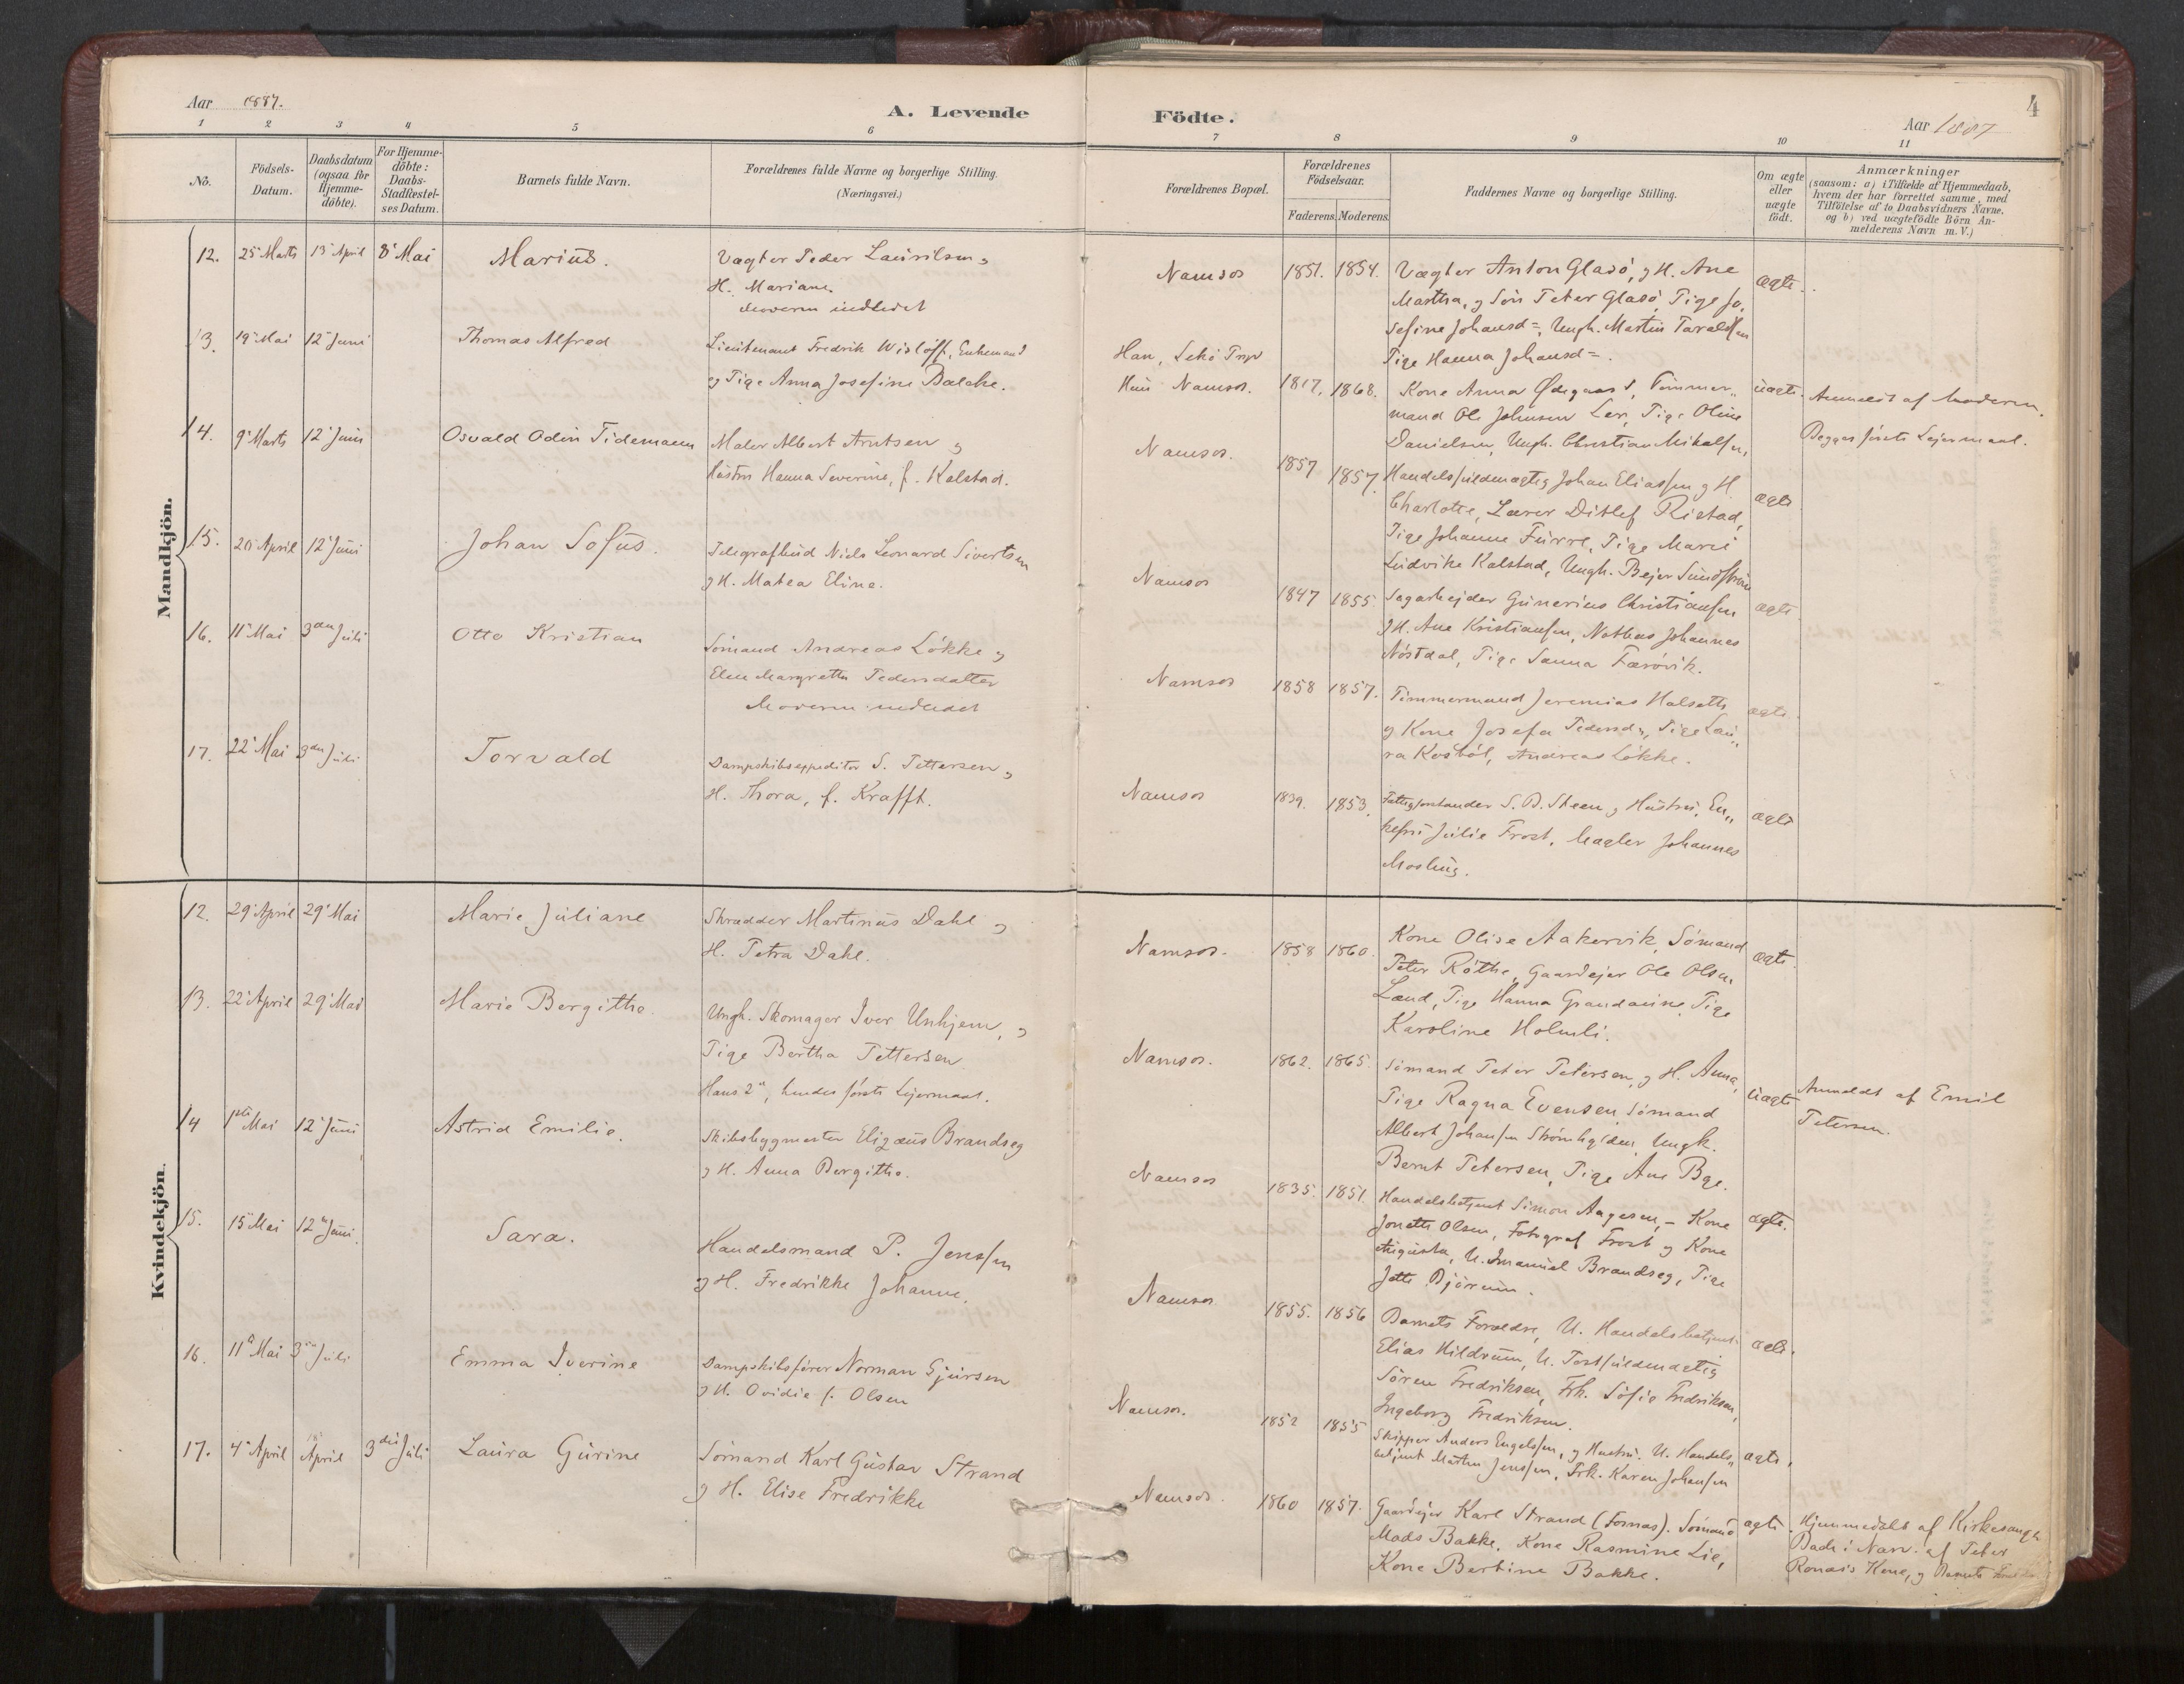 Aar 1887.
A. Levende
Födte.
Aar 1887
4
1 2 3 4 5 6 7 8 9 10 11
No.
Födsels-
Datum.
Daabsdatum
(ogsaa for
Hjemme-
döbte).
For Hjemme-
döbte:
Daabs-
Stadfæstel-
ses Datum.
Barnets fulde Navn.
Forældrenes fulde Navne og borgerlige Stilling.
(Næringsvei.)
Forældrenes Bopæl.
Forældrenes
Födselsaar.
Faderens. Moderens.
Faddernes Navne og borgerlige Stilling.
Om ægte
eller
uægte
födt.
Anmærkninger
(saasom: a) i Tilfælde af Hjemmedaab,
hvem der har forrettet samme, med
Tilföielse af to Daabsvidners Navne,
og b) ved uægtefödte Börn An-
melderens Navn m. V.)
Mandkjön.
12. 25 Marts 13 April 8 Mai Marius.
Vægter Peder Lauritsen,
H. Mariane.
Moderen indledet
Namsos 1851. 1854.
Vægter Anton Glasö, g H. Ane
Martha, g Sön Peter Glasö, Pige Jo,
sefine Johansd=, Ungk. Martin Taraldsen
Pige Hanna Johansd=.
ægte.
13. 19 Mai 12 Juni Thomas Alfred
Lieutenant Fredrik Wislöff, Enkemand
og Pige Anna Josefine Balche.
Han, Lekö
Hun Namsos. 1817, 1868.
Kone Anna Ødegaard, Tömmer„
mand Ole Johnsen Ler, Pige Oline
Danielsen, Ungk. Christian Mikalsen,
uægte.
Anmeldt af Moderen.
Begges förste Lejermaal.
14. 9 Marts 12 Juni Osvald Odin Tidemann
Maler Albert Arntsen g
Hustru Hanna Severine, f. Kalstad.
Namsos. 1857 1857.
Handelsfuldmægtig Johan Eliassen g H
Charlotte, Lærer Ditlef Ristad,
Pige Johanne Furre, Pige Marie
Ludvike Kalstad, Ungk. Bejer Sundström
ægte
15. 20 April 12 Juni Johan Sofus.
Telegrafbud Niels Leonard Sivertsen
g H. Matea Eline.
Namsos 1847 1855.
Sagarbejder Gunerius Christiansen
g H. Ane Kristiansen, Johannes
Nöstdal, Pige Sanna Færövik.
ægte
16. 11 Mai 3die Juli Otto Kristian
Sömand Andreas Lökke g
Elen Margrethe Pedersdatter
Moderen indledet
Namsos 1858 1857.
Tömmermand Jeremias Halseth
g Kone Josefa Pedersd, Pige Lau„
ra Kosböl, Andreas Lökke.
ægte.
17. 22 Mai 3die Juli Torvald
Dampskibsexpeditör S. Pettersen g
H. Thora, f. Krafft.
Namsos 1839. 1853.
Fattigforstander S. B. Steen g Hustru, En„
kefru Julie Frost, Mægler Johannes
Mosling.
ægte
Kvindekjön.
12. 29 April 29 Mai Marie Juliane
Skrædder Martinus Dahl g
H. Petra Dahl.
Namsos. 1858 1860.
Kone Olise Aakervik, Sömand
Peter Röthe, Gaardejer Ole Olsen
Lænd, Pige Hanna, Pige
Karoline Holmli.
ægte.
13. 22 April 29 Mai Marie Bergithe.
Ungk. Skomager Iver Unhjem, g
Pige Bertha Pettersen
Hans 2det, hendes förste Lejermaal.
Namsos. 1862. 1865.
Sömand Peter Petersen, g H. Anna,
Pige Ragna Evensen, Sömand
Albert Johansen, Ungk.
Bernt Petersen, Pige Ane Bge.
uægte
Anmeldt af Emil
Petersen.
14 1ste Mai 12 Juni Astrid Emilie.
Skibsbygmester Elizæus Brandseg
g H. Anna Bergithe.
Namsos 1835. 1851.
Handelsbetjent Simon Aagesen, – Kone
Jonette Olsen, Fotograf Frost g Kone
Augusta, U. Imanuel Brandseg, Pige
Jette Björum.
ægte.
15. 15 Mai 12 Juni. Sara.
Handelsmand P. Jenssen
g H. Fredrikke Johanne.
Namsos 1855. 1856
Barnets Forældre, U. Handelsbetjent
Elias Hildrum, U. Postfuldmægtig
Sören Fredriksen, Frk. Sofie Fredriksen,
Ingeborg Fredriksen.
ægte.
16. 11 Mai 3die Juli Emma Iverine
Dampskibsförer Norman Gjürsen
g H. Ovidie f. Olsen
Namsos. 1852 1855
Skipper Anders Engelsen, g Hustru. U. Handels„
betjent Martin Jenssen, Frk. Karen Johansen
ægte,
17. 4 April April 3die Juli Laura Gurine
Sömand Karl Gustav Strand
g H. Elise Fredrikke
Namsos. 1860 1857.
Gaardejer Karl Strand (Fosnæs). Sömand
Mads Bakke. Kone Rasmine Lie,
Kone Bertine Bakke.
ægte.
Hjemmedöbt af Kirkesanger
Bach i Nærv. af Peter
Kone, g Barnets